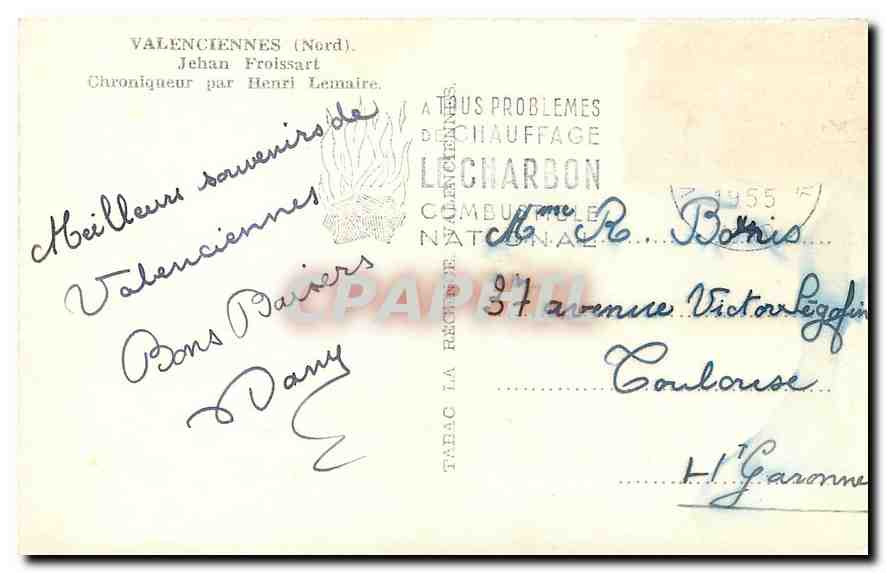 VALENCIENNES (Nord).
Jehan Froissart
Chroniqueur par Henri Lemaire.
Meilleurs souvenirs de
Valenciennes
Bons Baisers
Dany
TABAC LA RÉGENCE. VALENCIENNES.
A TOUS PROBLEMES
DE CHAUFFAGE
LE CHARBON
COMBUSTIBLE
NATIONAL
1955
CPAPHIL
Mme R.
37 avenue Victor Ségoffin
Toulouse
Ht Garonne